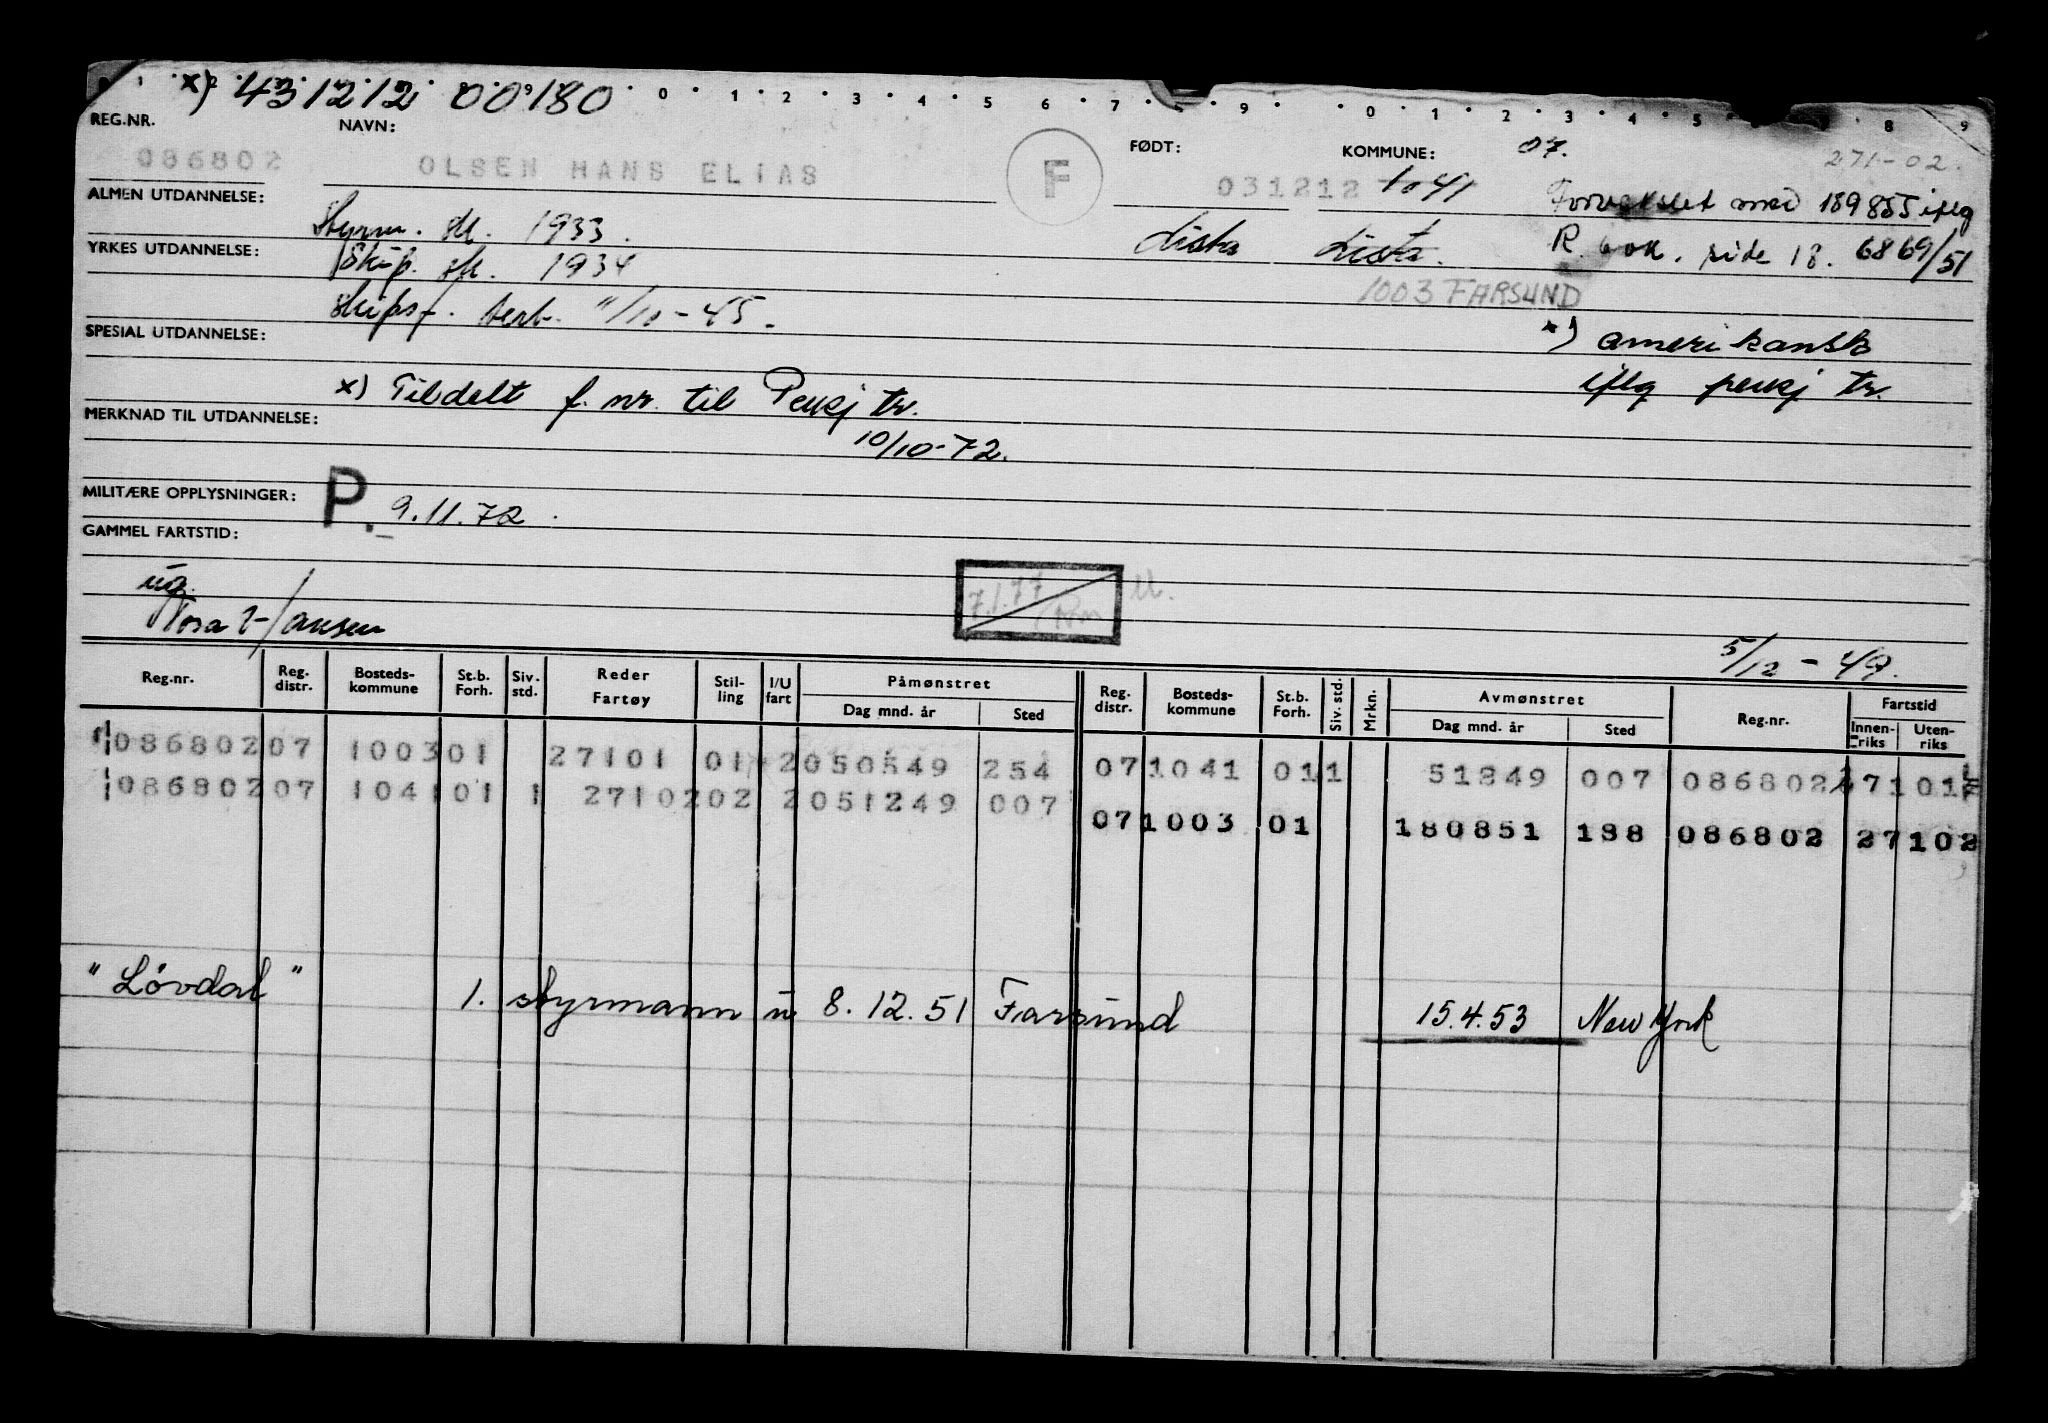 x) 431212 00180
0 1 2 3 4 5 6 7 9 0 1 2 3 4 5 8 9
REG.NR. NAVN: FØDT: KOMMUNE: 07. 271-02.
086802 OLSEN HANS ELIAS F 031212 1041 Forvekslet med 189855 iflg
ALMEN UTDANNELSE: Styrm. sk. 1933. Lista Lista. R. bok. side 18. 6869/51
YRKES UTDANNELSE: Skip. sk. 1934 1003 FARSUND
Skipsf. sert. 11/10-45.
SPESIAL UTDANNELSE: x) amerikansk
x) Tildelt f.nr. til Penkj tr. iflg penkj tr.
MERKNAD TIL UTDANNELSE: 10/10-72.
MILITÆRE OPPLYSNINGER: P. 9.11.72.
GAMMEL FARTSTID:
ug. 7.1.77
Nora Hansen 5/12-49.
Reg.nr. Reg. distr. Bosteds-kommune St.b. Forh. Siv. std. Reder Fartøy Stil-ling I/U fart Påmønstret Dag mnd. år Sted Reg. distr. Bosteds-kommune St.b. Forh. Siv. std. Mrkn. Avmønstret Dag mnd. år Sted Reg.nr. Fartstid Innen-riks Uten-riks
086802 07 1003 01 27101 01 2 050549 254 07 1041 01 1 51249 007 086802 27101
086802 07 1041 01 1 27102 02 2 051249 007
07 1003 01 180851 188 086802 27102
"Lövdal" 1. styrmann u 8.12.51 Farsund 15.4.53 New York